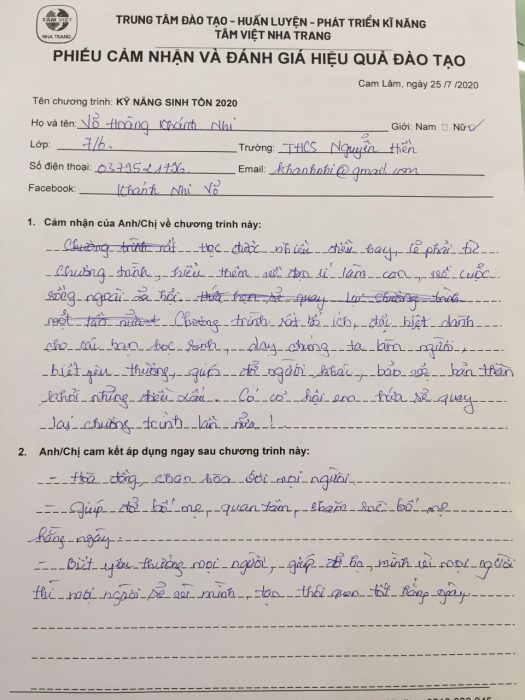 TÂM VIỆT
NHA TRANG
TRUNG TÂM ĐÀO TẠO - HUẤN LUYỆN - PHÁT TRIỂN KĨ NĂNG
TÂM VIỆT NHA TRANG
PHIẾU CẢM NHẬN VÀ ĐÁNH GIÁ HIỆU QUẢ ĐÀO TẠO
Cam Lâm, ngày 25 /7 /2020
Tên chương trình: KỸ NĂNG SINH TỒN 2020
Họ và tên: Võ Hoàng Khánh Nhi Giới: Nam Nữ
Lớp: 7/6 Trường: THCS Nguyễn Hiền
Số điện thoại: 0379521796 Email: khanhnhi@gmail.com
Facebook: Khánh Nhi Võ
1. Cảm nhận của Anh/Chị về chương trình này:
Chương trình rất học được nhiều điều hay, lẽ phải từ
chương trình, hiểu thêm về đạo lí làm con, về cuộc
sống ngoài xã hội. thứ hẹn sẽ quay lại chương trình
một lần nữa. Chương trình rất bổ ích, đặt biệt dành
cho các bạn học sinh, dạy chúng ta làm người,
biết yêu thương, giúp đỡ người khác, bảo vệ bản thân
khỏi những điều xấu. Có cơ hội em hứa sẽ quay
lại chương trình lần nữa!
2. Anh/Chị cam kết áp dụng ngay sau chương trình này:
- Hoà đồng, chan hòa với mọi người
- Giúp đỡ bố mẹ, quan tâm, chăm sóc bố mẹ
hằng ngày.
- Biết yêu thương mọi người, giúp đỡ họ, mình vì mọi người
thì mọi người sẽ vì mình, tạo thói quen tốt hằng ngày